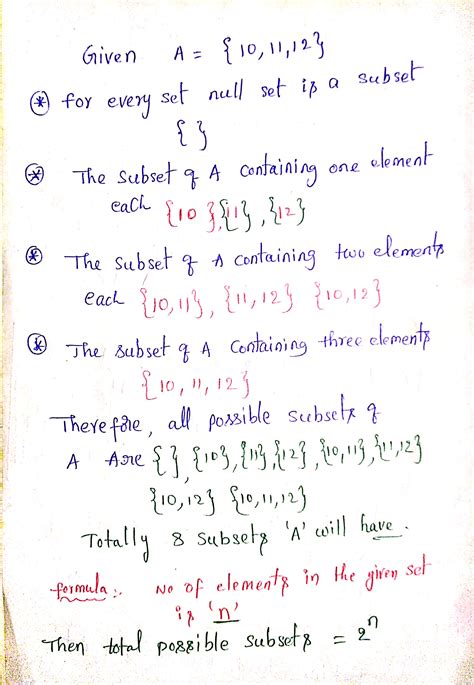 Given A = {10,11,12}
* for every set null set is a subset
{ }
* The subset of A containing one element
each {10},{11},{12}
* The subset of A containing two elements
each {10,11}, {11,12} {10,12}
* The subset of A containing three elements
{10,11,12}
Therefore, all possible subsets of
A Are { }, {10},{11},{12},{10,11},{11,12}
{10,12} {10,11,12}
Totally 8 subsets 'A' will have.
formula:. No of elements in the given set
is 'n'
Then total possible subsets = 2ⁿ